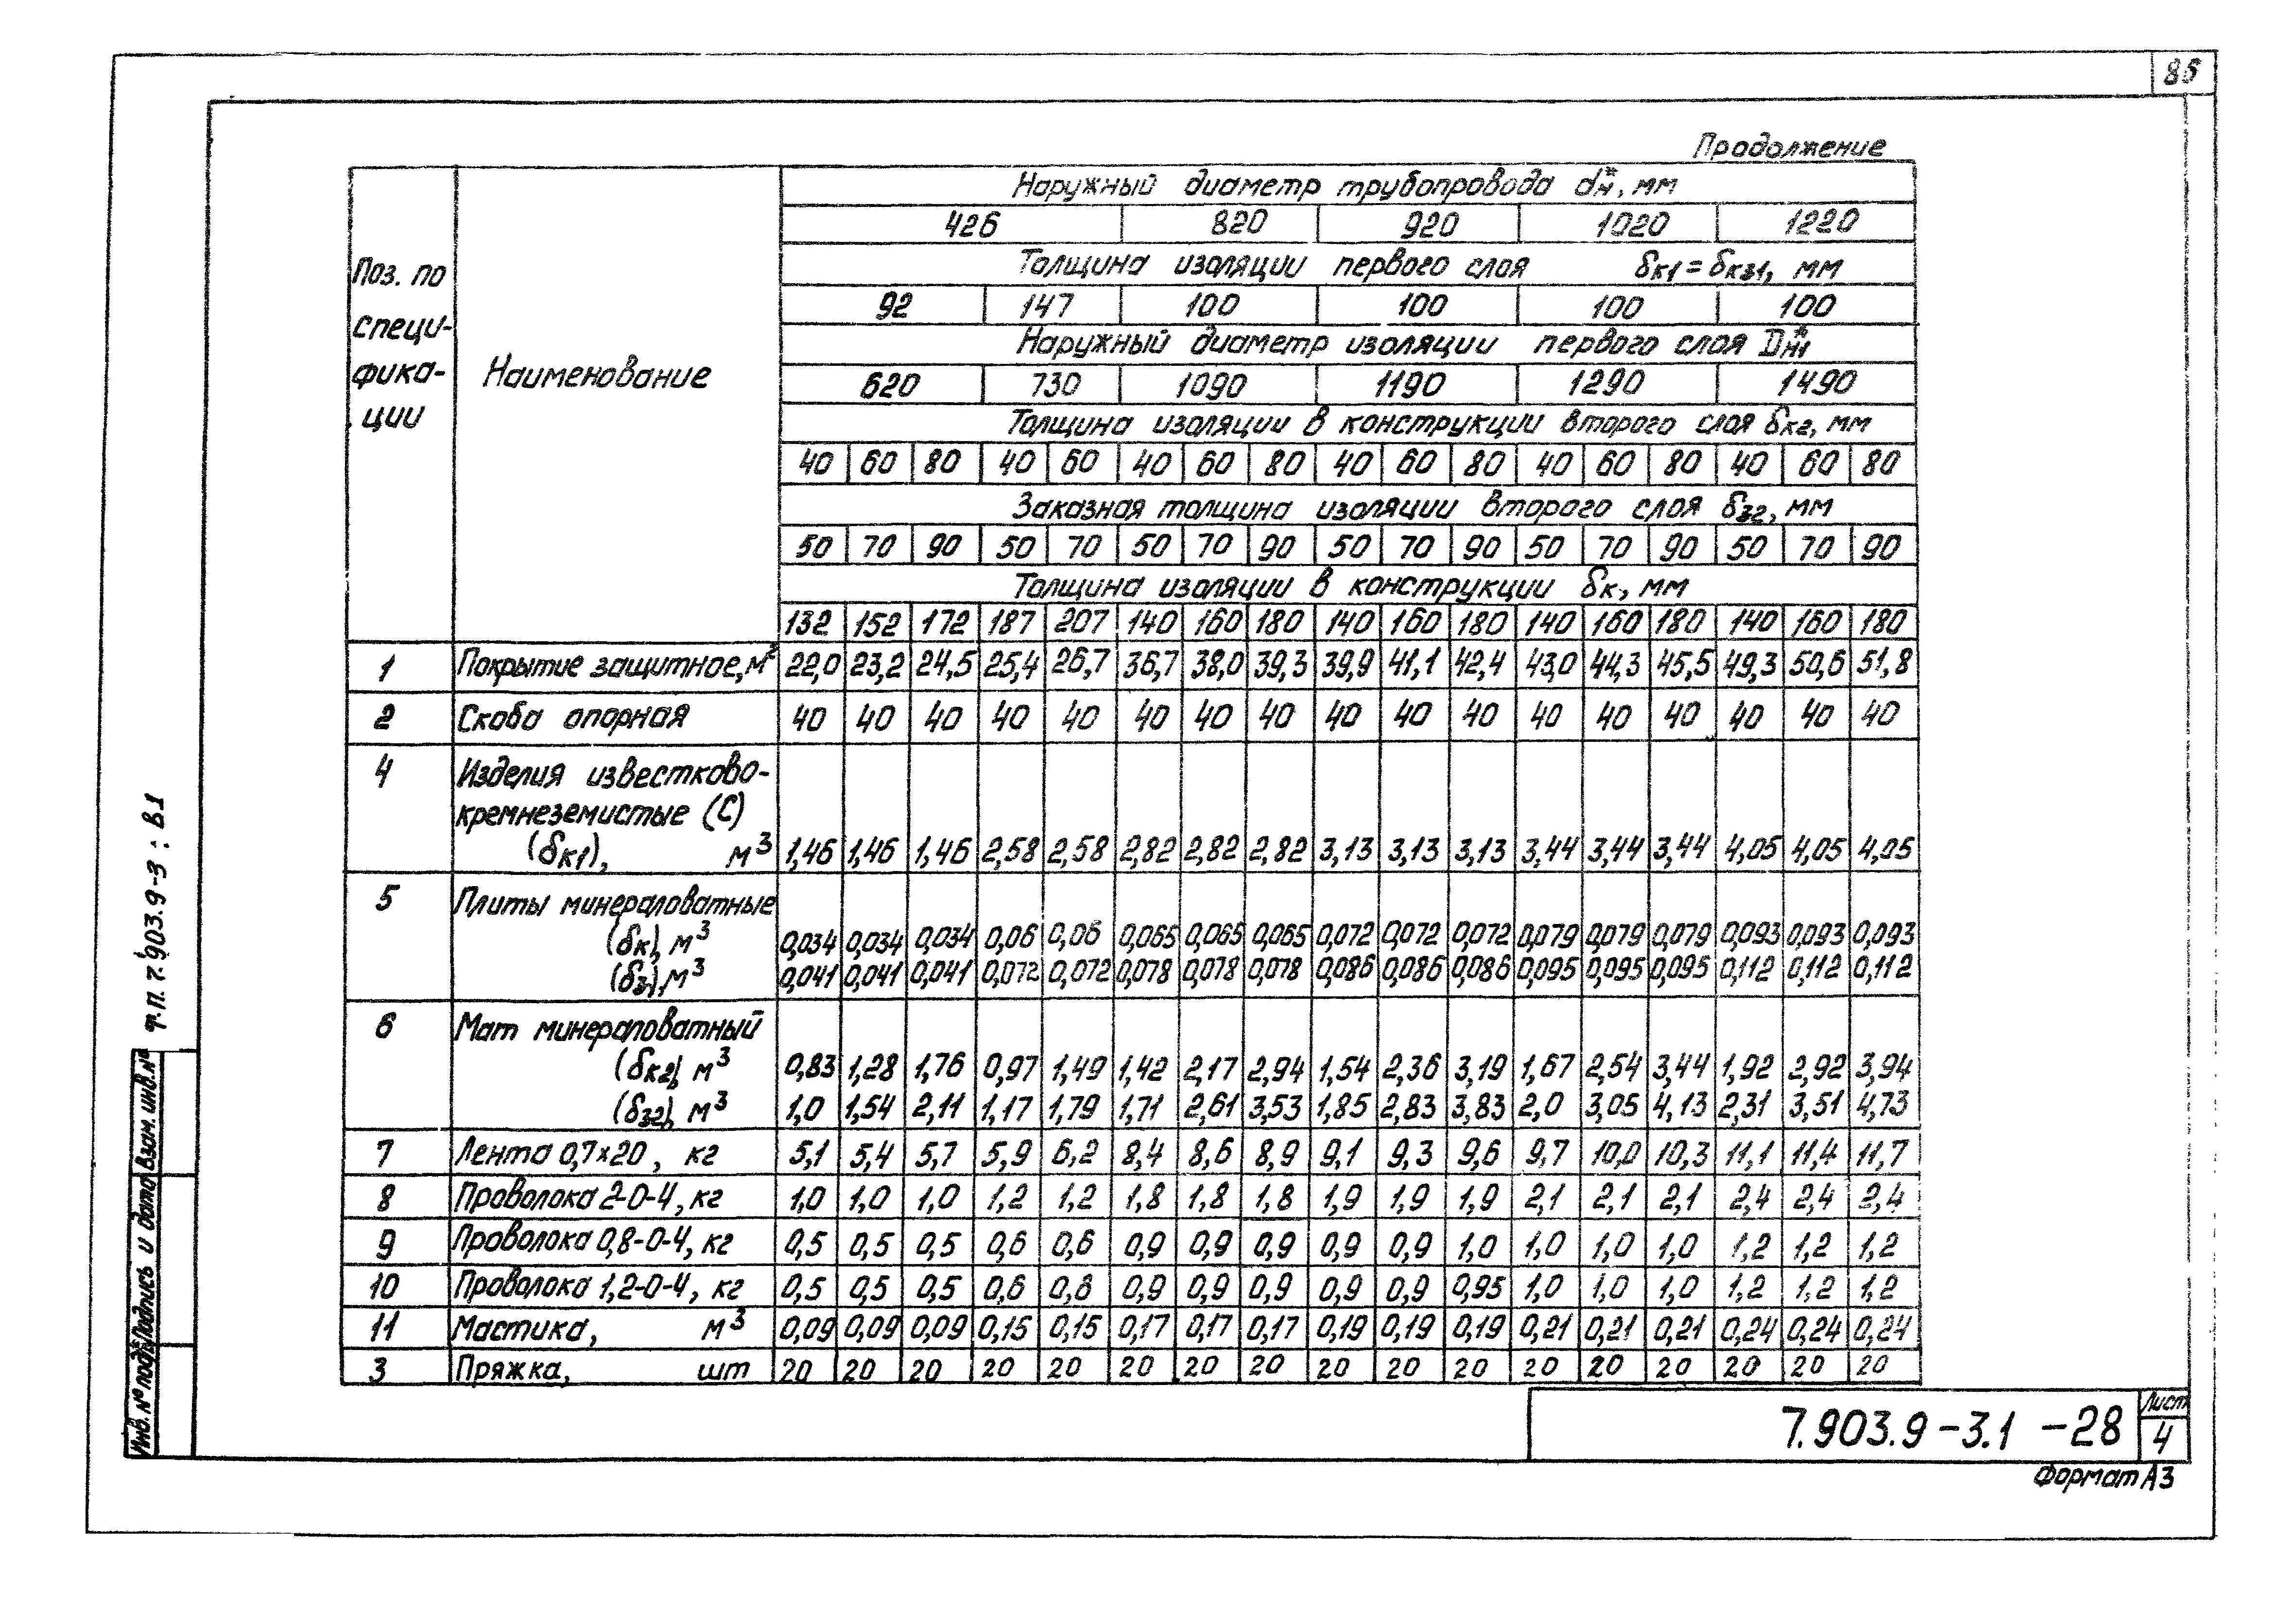 86
Продолжение
Поз. по специ-фика-ции
Наименование
Наружный диаметр трубопровода dн*, мм
426 820 920 1020 1220
Толщина изоляции первого слоя δк1 = δкз1, мм
92 147 100 100 100 100
Наружный диаметр изоляции первого слоя Dн1*
620 730 1090 1190 1290 1490
Толщина изоляции в конструкции второго слоя δк2, мм
40 60 80 40 60 40 60 80 40 60 80 40 60 80 40 60 80
Заказная толщина изоляции второго слоя δз2, мм
50 70 90 50 70 50 70 90 50 70 90 50 70 90 50 70 90
Толщина изоляции в конструкции δк, мм
132 152 172 187 207 140 160 180 140 160 180 140 160 180 140 160 180
1 Покрытие защитное, м² 22,0 23,2 24,5 25,4 26,7 36,7 38,0 39,3 39,9 41,1 42,4 43,0 44,3 45,5 49,3 50,6 51,8
2 Скоба опорная 40 40 40 40 40 40 40 40 40 40 40 40 40 40 40 40 40
4 Изделия известково-
кремнеземистые (С)
(δк1), м³ 1,46 1,46 1,46 2,58 2,58 2,82 2,82 2,82 3,13 3,13 3,13 3,44 3,44 3,44 4,05 4,05 4,05
5 Плиты минераловатные
(δк), м³ 0,034 0,034 0,034 0,06 0,06 0,065 0,065 0,065 0,072 0,072 0,072 0,079 0,079 0,079 0,093 0,093 0,093
(δз), м³ 0,041 0,041 0,041 0,072 0,072 0,078 0,078 0,078 0,086 0,086 0,086 0,095 0,095 0,095 0,112 0,112 0,112
6 Мат минераловатный
(δк2), м³ 0,83 1,28 1,76 0,97 1,49 1,42 2,17 2,94 1,54 2,36 3,19 1,67 2,54 3,44 1,92 2,92 3,94
(δз2), м³ 1,0 1,54 2,11 1,17 1,79 1,71 2,61 3,53 1,85 2,83 3,83 2,0 3,05 4,13 2,31 3,51 4,73
7 Лента 0,7×20, кг 5,1 5,4 5,7 5,9 6,2 8,4 8,6 8,9 9,1 9,3 9,6 9,7 10,0 10,3 11,1 11,4 11,7
8 Проволока 2-0-4, кг 1,0 1,0 1,0 1,2 1,2 1,8 1,8 1,8 1,9 1,9 1,9 2,1 2,1 2,1 2,4 2,4 2,4
9 Проволока 0,8-0-4, кг 0,5 0,5 0,5 0,6 0,6 0,9 0,9 0,9 0,9 0,9 1,0 1,0 1,0 1,0 1,2 1,2 1,2
10 Проволока 1,2-0-4, кг 0,5 0,5 0,5 0,6 0,6 0,9 0,9 0,9 0,9 0,9 0,95 1,0 1,0 1,0 1,2 1,2 1,2
11 Мастика, м³ 0,09 0,09 0,09 0,15 0,15 0,17 0,17 0,17 0,19 0,19 0,19 0,21 0,21 0,21 0,24 0,24 0,24
3 Пряжка, шт 20 20 20 20 20 20 20 20 20 20 20 20 20 20 20 20 20
т.п. 7.903.9-3 : В.1
Инв. № подл. Подпись и дата Взам. инв. №
7.903.9-3.1 -28
Лист
4
Формат А3